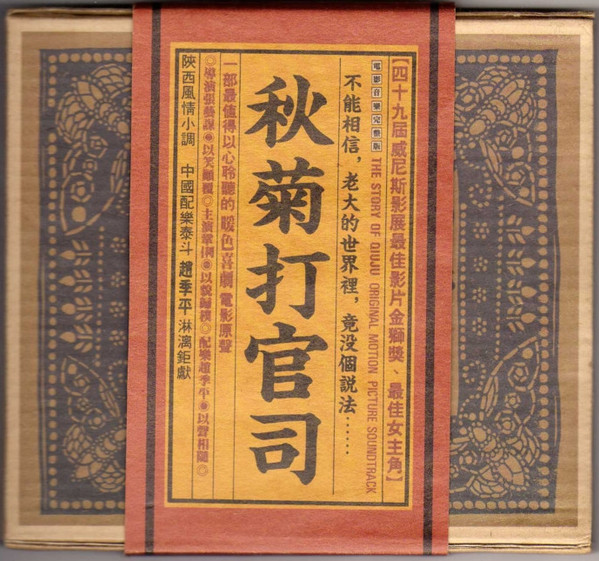 【四十九屆威尼斯影展最佳影片金獅獎、最佳女主角】
電影音樂完整版 THE STORY OF QIUJU ORIGINAL MOTION PICTURE SOUNDTRACK
不能相信，老大的世界裡，竟没個説法……
秋菊打官司
一部最值得以心聆聽的 暖色喜劇 電影原聲
◎導演張藝謀●以笑顛覆◎主演鞏俐●以貌歸樸◎配樂趙季平●以聲相隨◎
陝西風情小調 中國配樂泰斗 趙季平 淋漓鉅獻